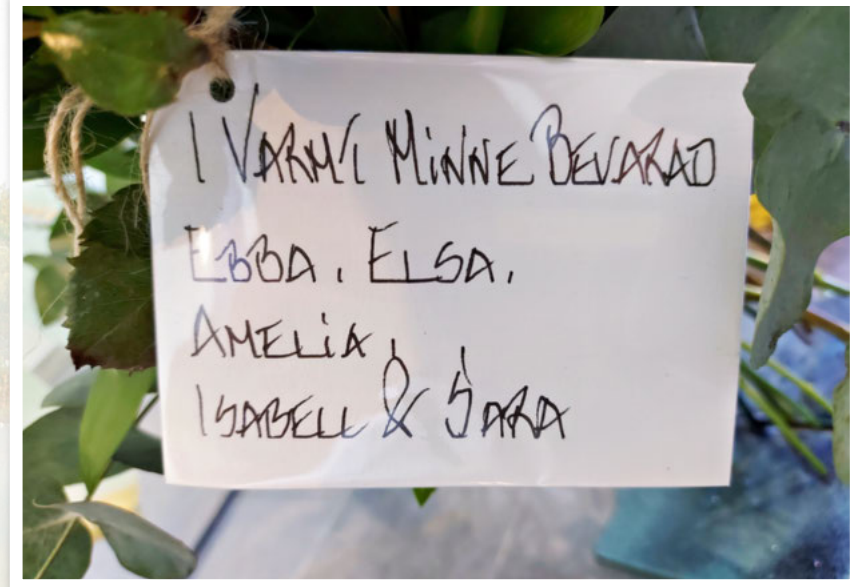 I VARMT MINNE BEVARAD
EBBA, ELSA,
AMELIA,
ISABELL & SARA